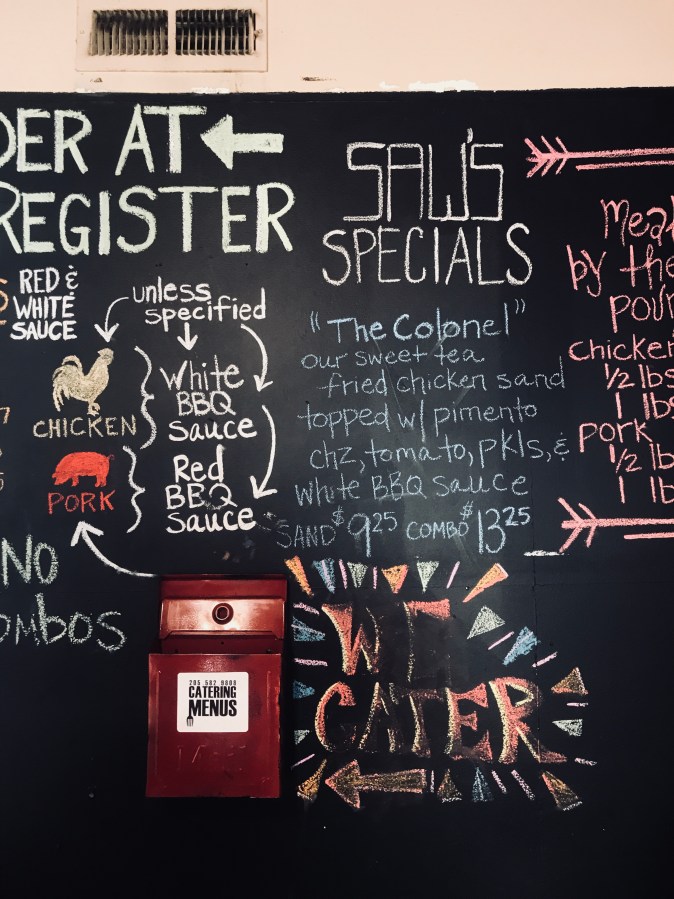 DER AT
REGISTER
RED &
WHITE
SAUCE
unless
specified
CHICKEN
White
BBQ
Sauce
PORK
Red
BBQ
Sauce
NO
ombos
SAW'S
SPECIALS
"The Colonel"
our sweet tea
fried chicken sand
topped w/ pimento
chz, tomato, pkls, &
white BBQ sauce
SAND $9.25 COMBO $13.25
Meat
by the
poun
chicken
1/2 lbs
1 lbs
pork
1/2 lb
1 lb
WE
CATER
205 582 9808
CATERING
MENUS